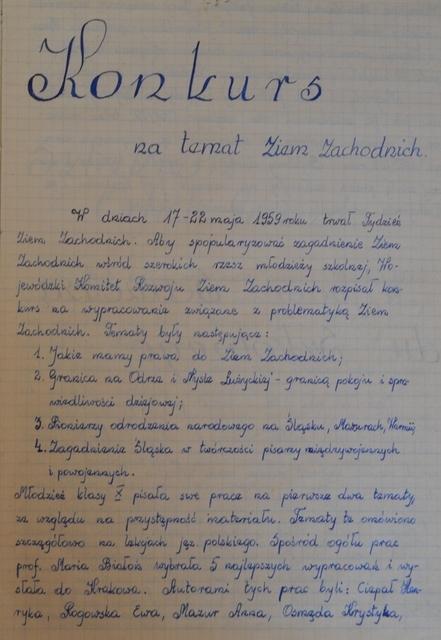 Konkurs
na temat Ziem Zachodnich.
W dniach 17-22 maja 1959 roku trwał Tydzień
Ziem Zachodnich. Aby spopularyzować zagadnienie Ziem
Zachodnich wśród szerokich rzesz młodzieży szkolnej, Wo-
jewódzki Komitet Rozwoju Ziem Zachodnich rozpisał kon-
kurs na wypracowania związane z problematyką Ziem
Zachodnich. Tematy były następujące:
1. Jakie mamy prawa do Ziem Zachodnich;
2. Granica na Odrze i Nysie Łużyckiej - granicą pokoju i spra-
wiedliwości dziejowej;
3. Pionierzy odrodzenia narodowego na Śląsku, Mazurach, Warmii;
4. Zagadnienia Śląska w twórczości pisarzy międzywojennych
i powojennych.
Młodzież klasy X pisała swe prace na pierwsze dwa tematy,
ze względu na przystępność materiału. Tematy te omówiono
szczegółowo na lekcjach jęz. polskiego. Spośród ogółu prac
prof. Maria Białoń wybrała 5 najlepszych wypracowań i wy-
słała do Krakowa. Autorami tych prac byli: Ciepał Hen-
ryka, Rogowska Ewa, Mazur Anna, Osmęda Krystyka,